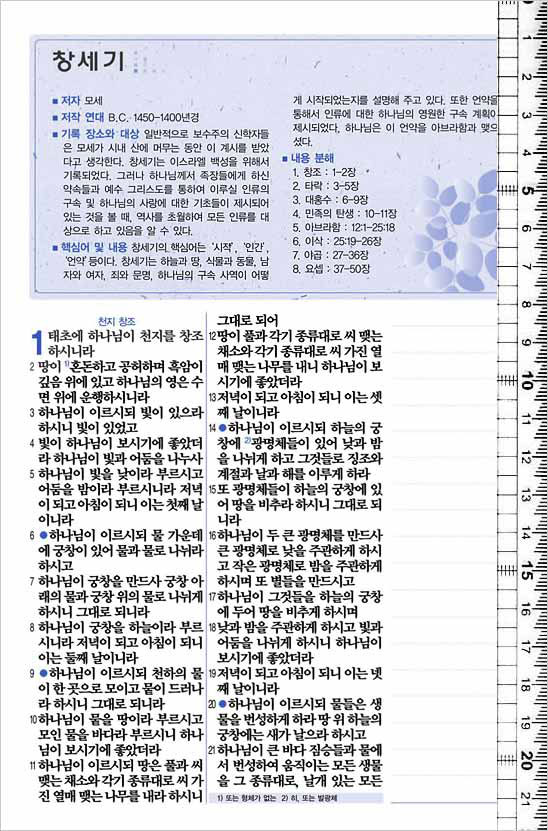 창세기
■ 저자 모세
■ 저작 연대 B.C. 1450-1400년경
■ 기록 장소와 대상 일반적으로 보수주의 신학자들
은 모세가 시내 산에 머무는 동안 이 계시를 받았
다고 생각한다. 창세기는 이스라엘 백성을 위해서
기록되었다. 그러나 하나님께서 족장들에게 하신
약속들과 예수 그리스도를 통하여 이루실 인류의
구속 및 하나님의 사랑에 대한 기초들이 제시되어
있는 것을 볼 때, 역사를 초월하여 모든 인류를 대
상으로 하고 있음을 알 수 있다.
■ 핵심어 및 내용 창세기의 핵심어는 '시작', '인간',
'언약' 등이다. 창세기는 하늘과 땅, 식물과 동물, 남
자와 여자, 죄와 문명, 하나님의 구속 사역이 어떻
게 시작되었는지를 설명해 주고 있다. 또한 언약을
통해서 인류에 대한 하나님의 영원한 구속 계획이
제시되었다. 하나님은 이 언약을 아브라함과 맺으
셨다.
■ 내용 분해
1. 창조 : 1-2장
2. 타락 : 3-5장
3. 대홍수 : 6-9장
4. 민족의 탄생 : 10-11장
5. 아브라함 : 12:1-25:18
6. 이삭 : 25:19-26장
7. 야곱 : 27-36장
8. 요셉 : 37-50장
천지 창조
1 태초에 하나님이 천지를 창조
하시니라
2 땅이 1)혼돈하고 공허하며 흑암이
깊음 위에 있고 하나님의 영은 수
면 위에 운행하시니라
3 하나님이 이르시되 빛이 있으라
하시니 빛이 있었고
4 빛이 하나님이 보시기에 좋았더
라 하나님이 빛과 어둠을 나누사
5 하나님이 빛을 낮이라 부르시고
어둠을 밤이라 부르시니라 저녁
이 되고 아침이 되니 이는 첫째 날
이니라
6 ●하나님이 이르시되 물 가운데
에 궁창이 있어 물과 물로 나뉘라
하시고
7 하나님이 궁창을 만드사 궁창 아
래의 물과 궁창 위의 물로 나뉘게
하시니 그대로 되니라
8 하나님이 궁창을 하늘이라 부르
시니라 저녁이 되고 아침이 되니
이는 둘째 날이니라
9 ●하나님이 이르시되 천하의 물
이 한 곳으로 모이고 뭍이 드러나
라 하시니 그대로 되니라
10 하나님이 뭍을 땅이라 부르시고
모인 물을 바다라 부르시니 하나
님이 보시기에 좋았더라
11 하나님이 이르시되 땅은 풀과 씨
맺는 채소와 각기 종류대로 씨 가
진 열매 맺는 나무를 내라 하시니
그대로 되어
12 땅이 풀과 각기 종류대로 씨 맺는
채소와 각기 종류대로 씨 가진 열
매 맺는 나무를 내니 하나님이 보
시기에 좋았더라
13 저녁이 되고 아침이 되니 이는 셋
째 날이니라
14 ●하나님이 이르시되 하늘의 궁
창에 2)광명체들이 있어 낮과 밤
을 나뉘게 하고 그것들로 징조와
계절과 날과 해를 이루게 하라
15 또 광명체들이 하늘의 궁창에 있
어 땅을 비추라 하시니 그대로 되
니라
16 하나님이 두 큰 광명체를 만드사
큰 광명체로 낮을 주관하게 하시
고 작은 광명체로 밤을 주관하게
하시며 또 별들을 만드시고
17 하나님이 그것들을 하늘의 궁창
에 두어 땅을 비추게 하시며
18 낮과 밤을 주관하게 하시고 빛과
어둠을 나뉘게 하시니 하나님이
보시기에 좋았더라
19 저녁이 되고 아침이 되니 이는 넷
째 날이니라
20 ●하나님이 이르시되 물들은 생
물을 번성하게 하라 땅 위 하늘의
궁창에는 새가 날으라 하시고
21 하나님이 큰 바다 짐승들과 물에
서 번성하여 움직이는 모든 생물
을 그 종류대로, 날개 있는 모든
1) 또는 형체가 없는 2) 히, 또는 발광체
1
2
3
4
5
6
7
8
9
10
11
12
13
14
15
16
17
18
19
20
21